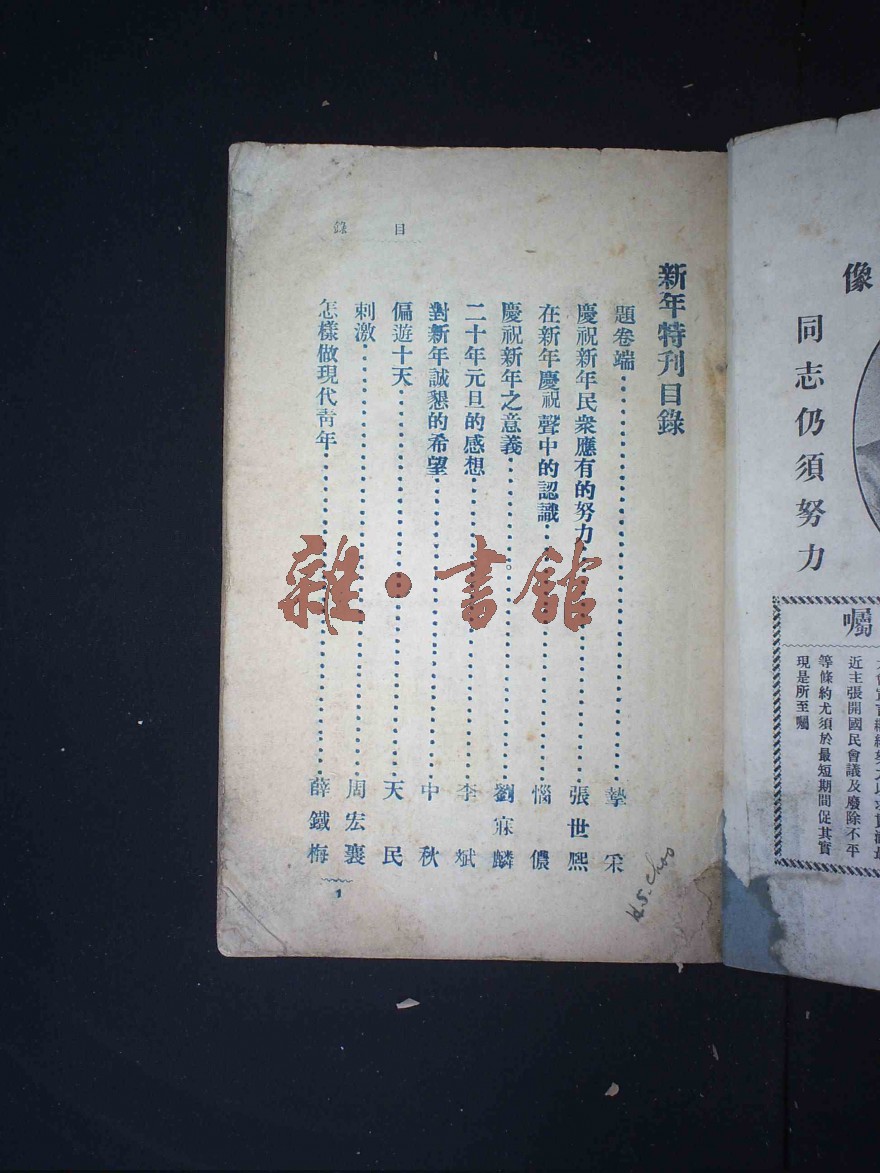 像
同志仍須努力
囑
近主張開國民會議及廢除不平
等條約尤須於最短期間促其實
現是所至囑
目錄
新年特刊目錄
題卷端……摯采
慶祝新年民衆應有的努力……張世熙
在新年慶祝聲中的認識……惱儂
慶祝新年之意義……劉寐麟
二十年元旦的感想……李斌
對新年誠懇的希望……中秋
偏遊十天……天民
刺激……周宏襄
怎樣做現代靑年……薛鐵梅
1
H.S. Choo
雜·書館